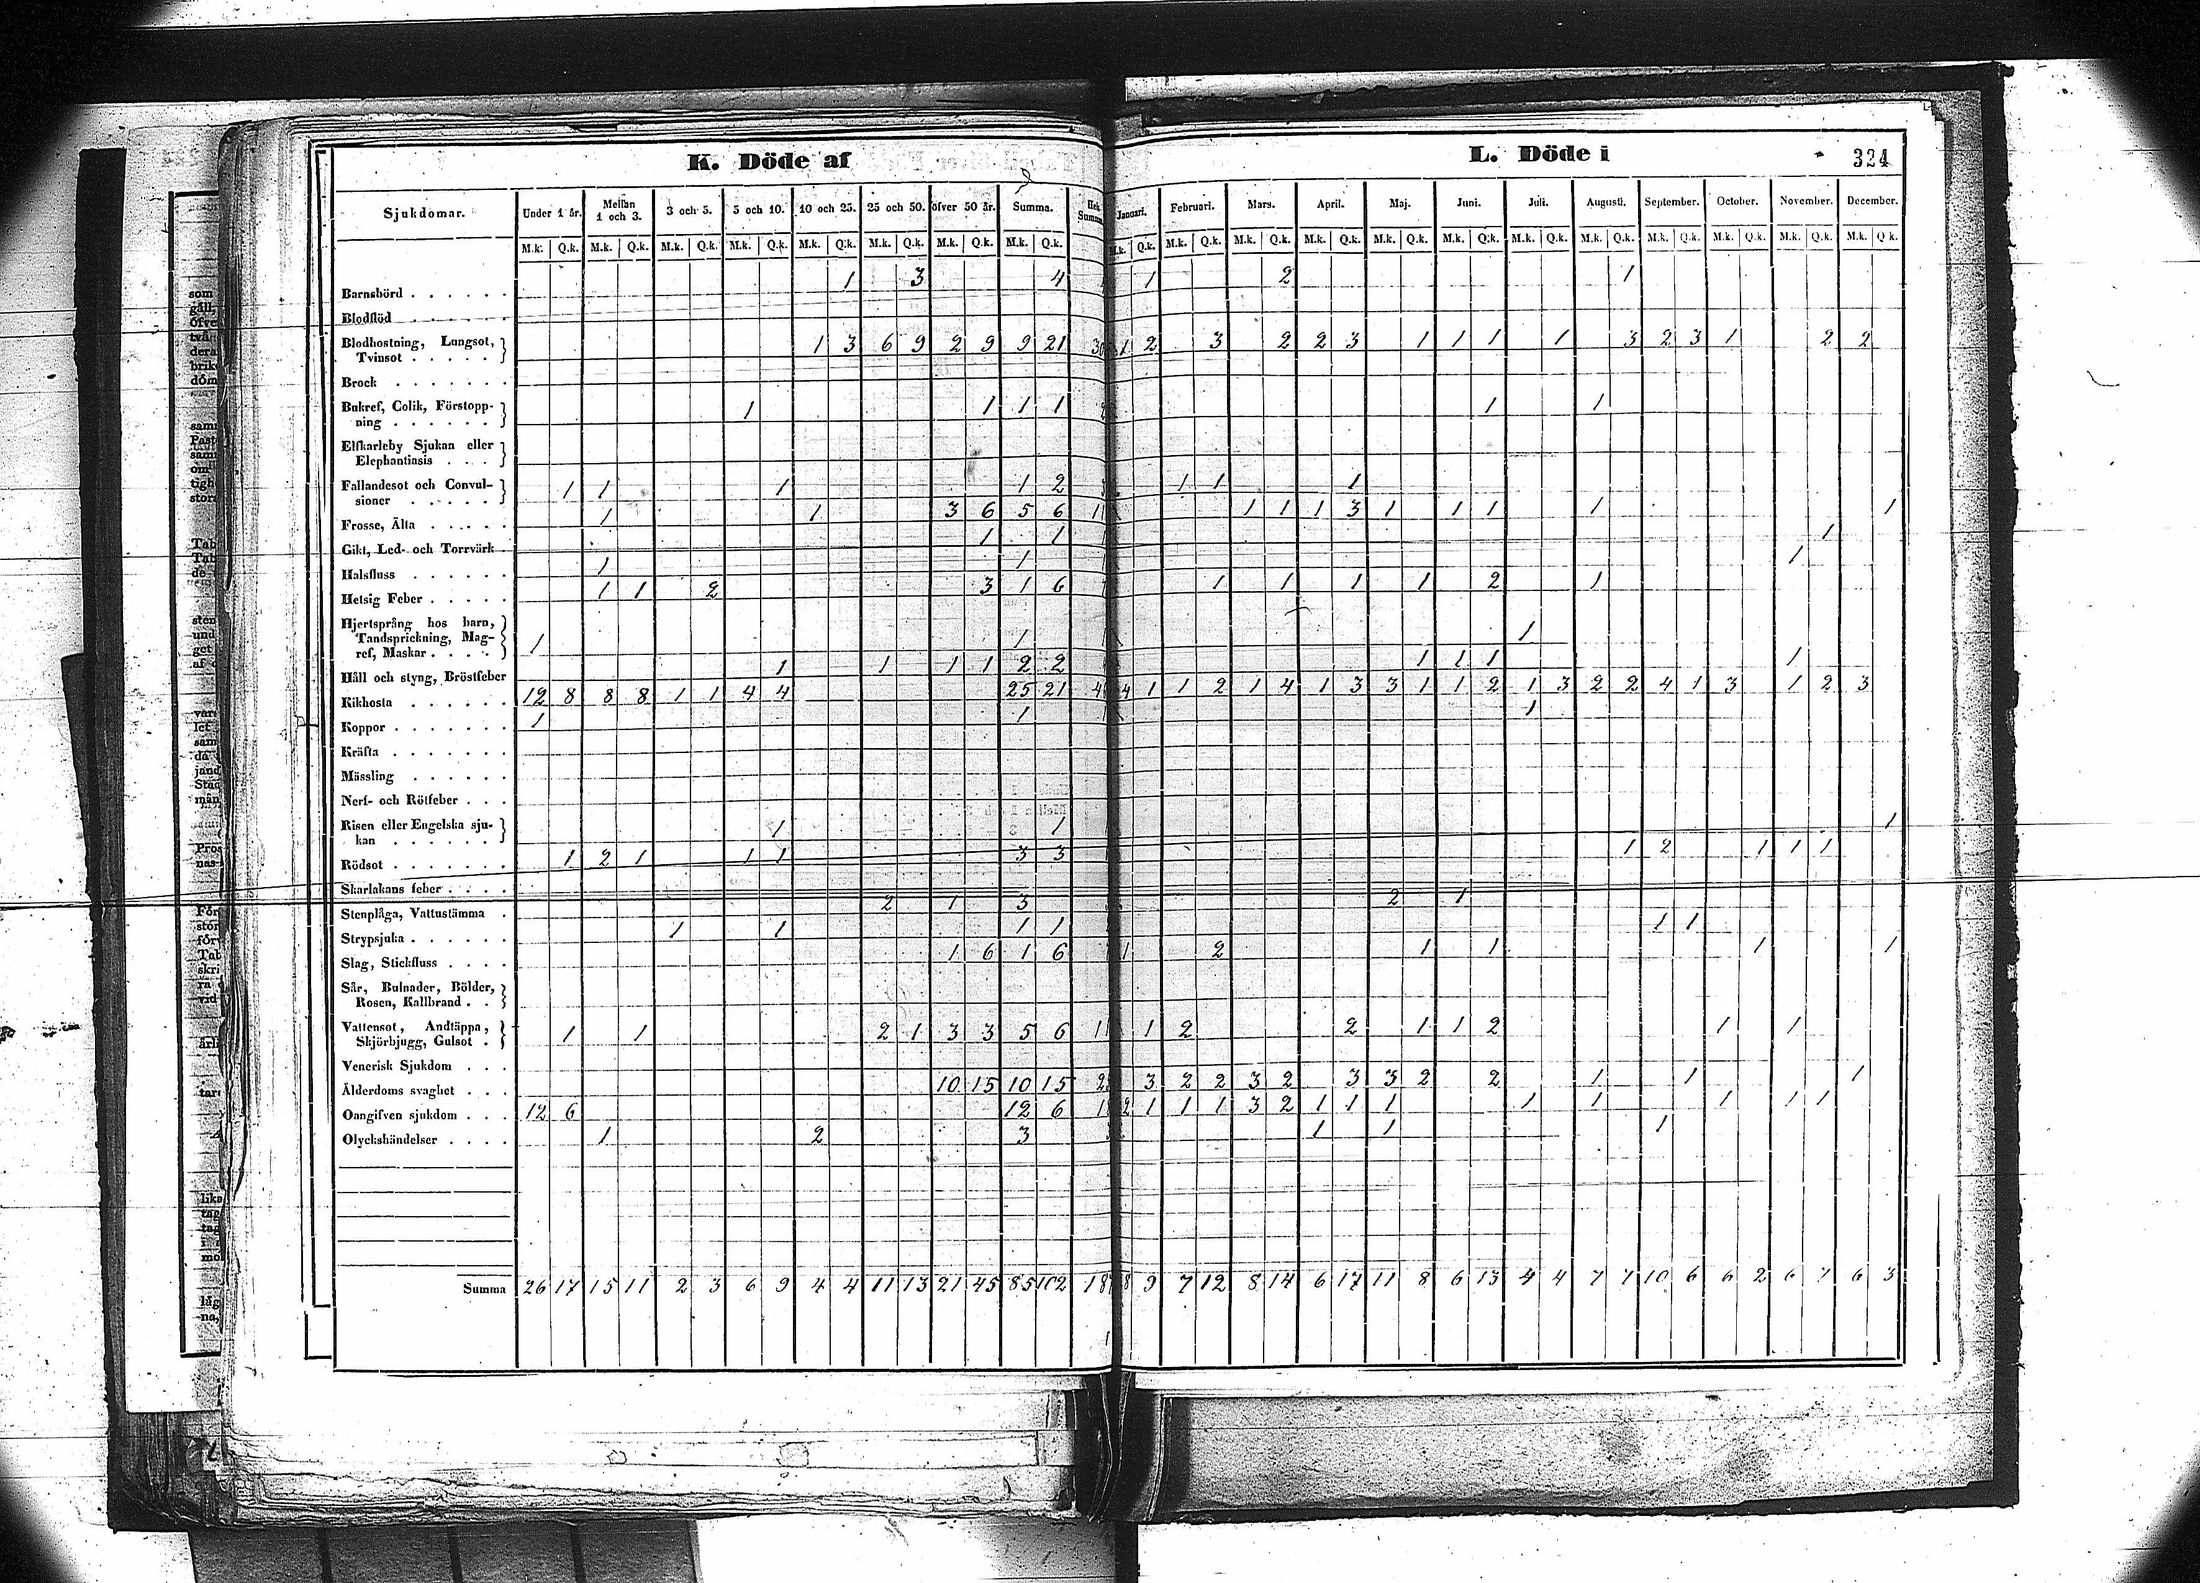 K. Döde af
L. Döde i
324
Sjukdomar. Under 1 år. Mellan 1 och 3. 3 och 5. 5 och 10. 10 och 25. 25 och 50. öfver 50 år. Summa. Hel Summa Januari. Februari. Mars. April. Maj. Juni. Juli. Augusti. September. October. November. December.
M.k. Q.k. M.k. Q.k. M.k. Q.k. M.k. Q.k. M.k. Q.k. M.k. Q.k. M.k. Q.k. M.k. Q.k. M.k. Q.k. M.k. Q.k. M.k. Q.k. M.k. Q.k. M.k. Q.k. M.k. Q.k. M.k. Q.k. M.k. Q.k. M.k. Q.k. M.k. Q.k. M.k. Q.k. M.k. Q.k.
Barnsbörd . . . . . . 1 3 4 1 2 1
Blodflöd . . . . . .
Blodhostning, Lungsot,
Tvinsot . . . . . 1 3 6 9 2 9 9 21 30 1 2 3 2 2 3 1 1 1 1 3 2 3 1 2 2
Brock . . . . . . .
Bukref, Colik, Förstopp-
ning . . . . . . 1 1 1 1 1 1
Elfkarleby Sjukan eller
Elephantiasis . . .
Fallandesot och Convul-
sioner . . . . . 1 1 1 1 2 1 1 1
Frosse, Älta . . . . . 1 1 3 6 5 6 1 1 1 3 1 1 1 1 1
Gikt, Led- och Torrvärk 1 1 1
Halsfluss . . . . . . 1 1 1
Hetsig Feber . . . . . 1 1 2 3 1 6 1 1 1 1 2 1
Hjertsprång hos barn,
Tandsprickning, Mag-
ref, Maskar . . . . 1 1 1
Håll och styng, Bröstfeber 1 1 1 1 2 2 1 1 1 1
Kikhosta . . . . . . 12 8 8 8 1 1 4 4 25 21 4 1 1 2 1 4 1 3 3 1 1 2 1 3 2 2 4 1 3 1 2 3
Koppor . . . . . . . 1 1 1
Kräfta . . . . . . .
Mässling . . . . . .
Nerf- och Rötfeber . . .
Risen eller Engelska sju-
kan . . . . . . 1 1 1
Rödsot . . . . . . . 1 2 1 1 1 3 3 1 2 1 1 1
Skarlakans feber . . . .
Stenplåga, Vattustämma . 2 1 3 2 1
Strypsjuka . . . . . . 1 1 1 1 1 1
Slag, Stickfluss . . . . 1 6 1 6 1 2 1 1 1 1
Sår, Bulnader, Bölder,
Rosen, Kallbrand . .
Vattensot, Andtäppa,
Skjörbjugg, Gulsot . 1 1 2 1 3 3 5 6 1 2 2 1 1 2 1 1
Venerisk Sjukdom . . .
Ålderdoms svaghet . . . 10 15 10 15 3 2 2 3 2 3 3 2 2 1 1 1
Oangifven sjukdom . . . 12 6 12 6 2 1 1 1 3 2 1 1 1 1 1 1 1 1
Olyckshändelser . . . . 1 2 3 1 1 1
Summa 26 17 15 11 2 3 6 9 4 4 11 13 21 45 85 102 8 9 7 12 8 14 6 17 11 8 6 13 4 4 7 7 10 6 6 2 6 7 6 3